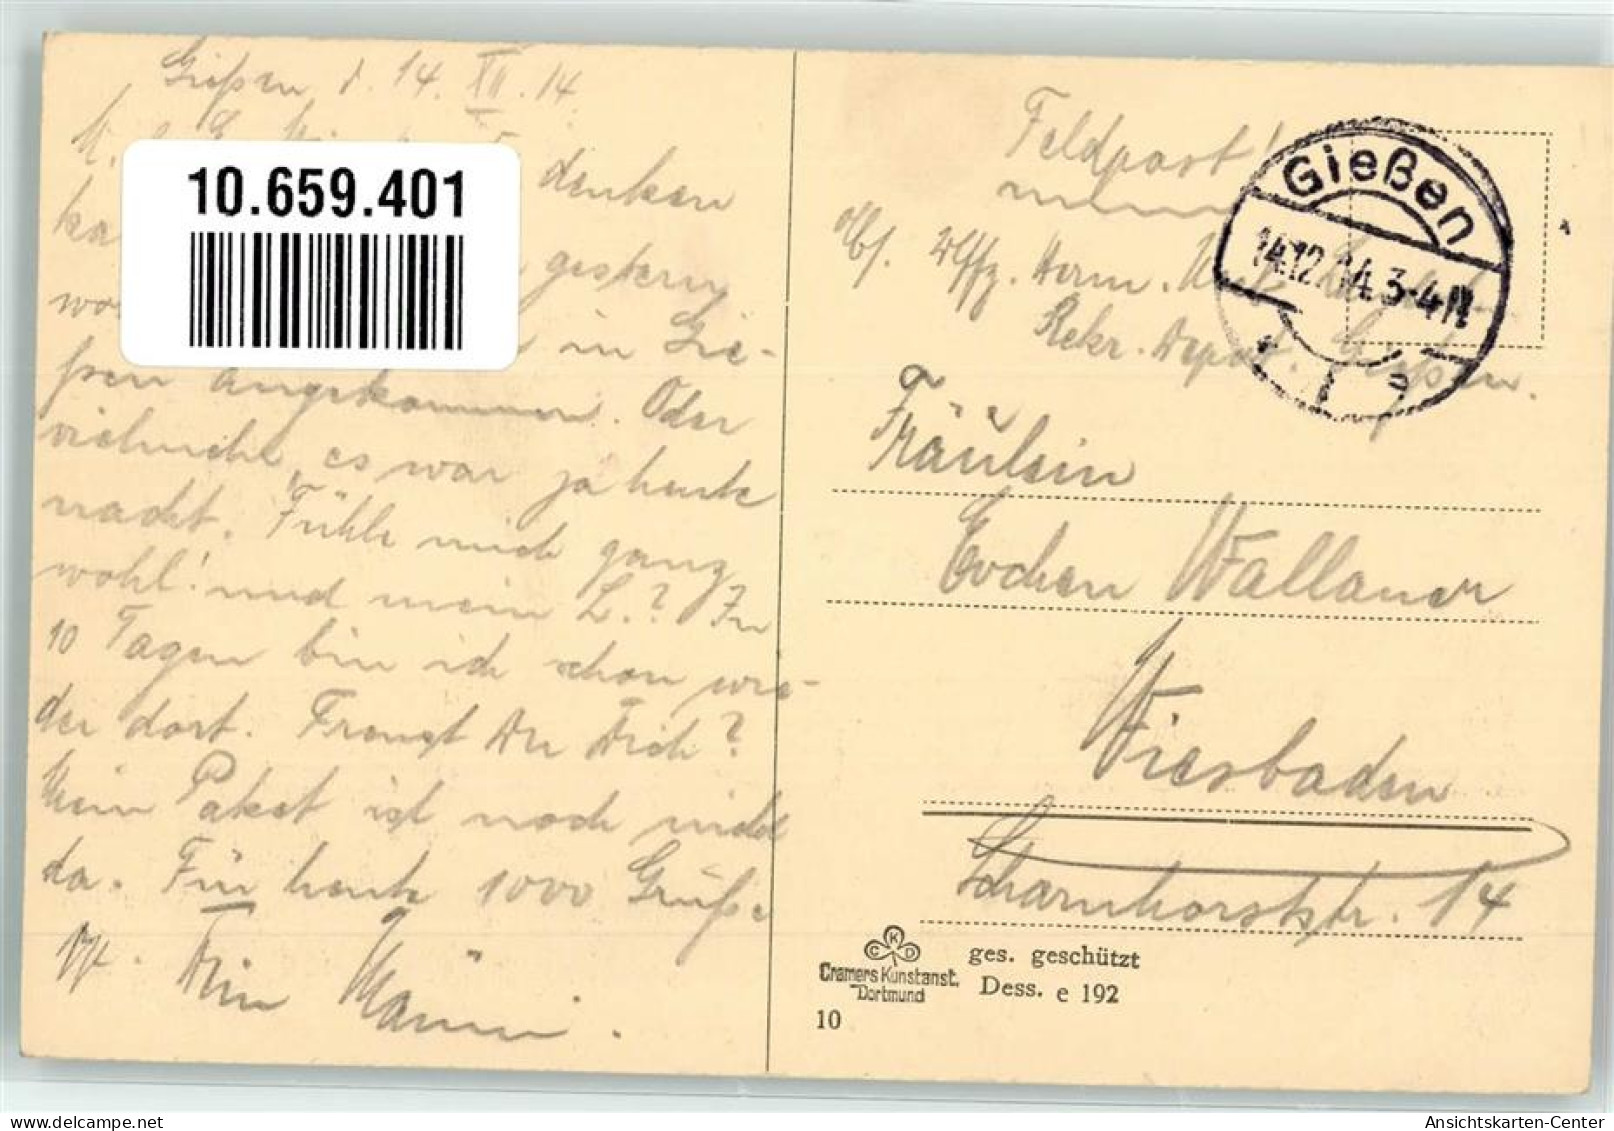 Gießen d. 14. XII. 14.
10.659.401
denken
gestern
in Gie-
ßen angekommen. Oder
vielmehr, es war ja heute
nacht. Fühle mich ganz
wohl! und mein L.? In
10 Tagen bin ich schon wie-
der dort. Freust Du Dich?
Mein Paket ist noch nicht
da. Für heute 1000 Grüße
Dein Männi.
Feldpost!
Gießen
14.12.14. 3-4 N
Abs.
Rekr. Depot. Gießen.
Fräulein
Evchen Wallauer
Wiesbaden
Scharnhorststr. 14
C K D
Cramers Kunstanst.
Dortmund
ges. geschützt
Dess. e 192
10
Ansichtskarten-Center